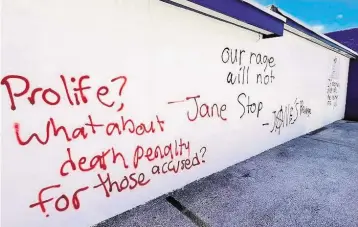 Prolife?
What about
death penalty
for those accused?
our rage
will not
Stop
—Jane
—JANE'S